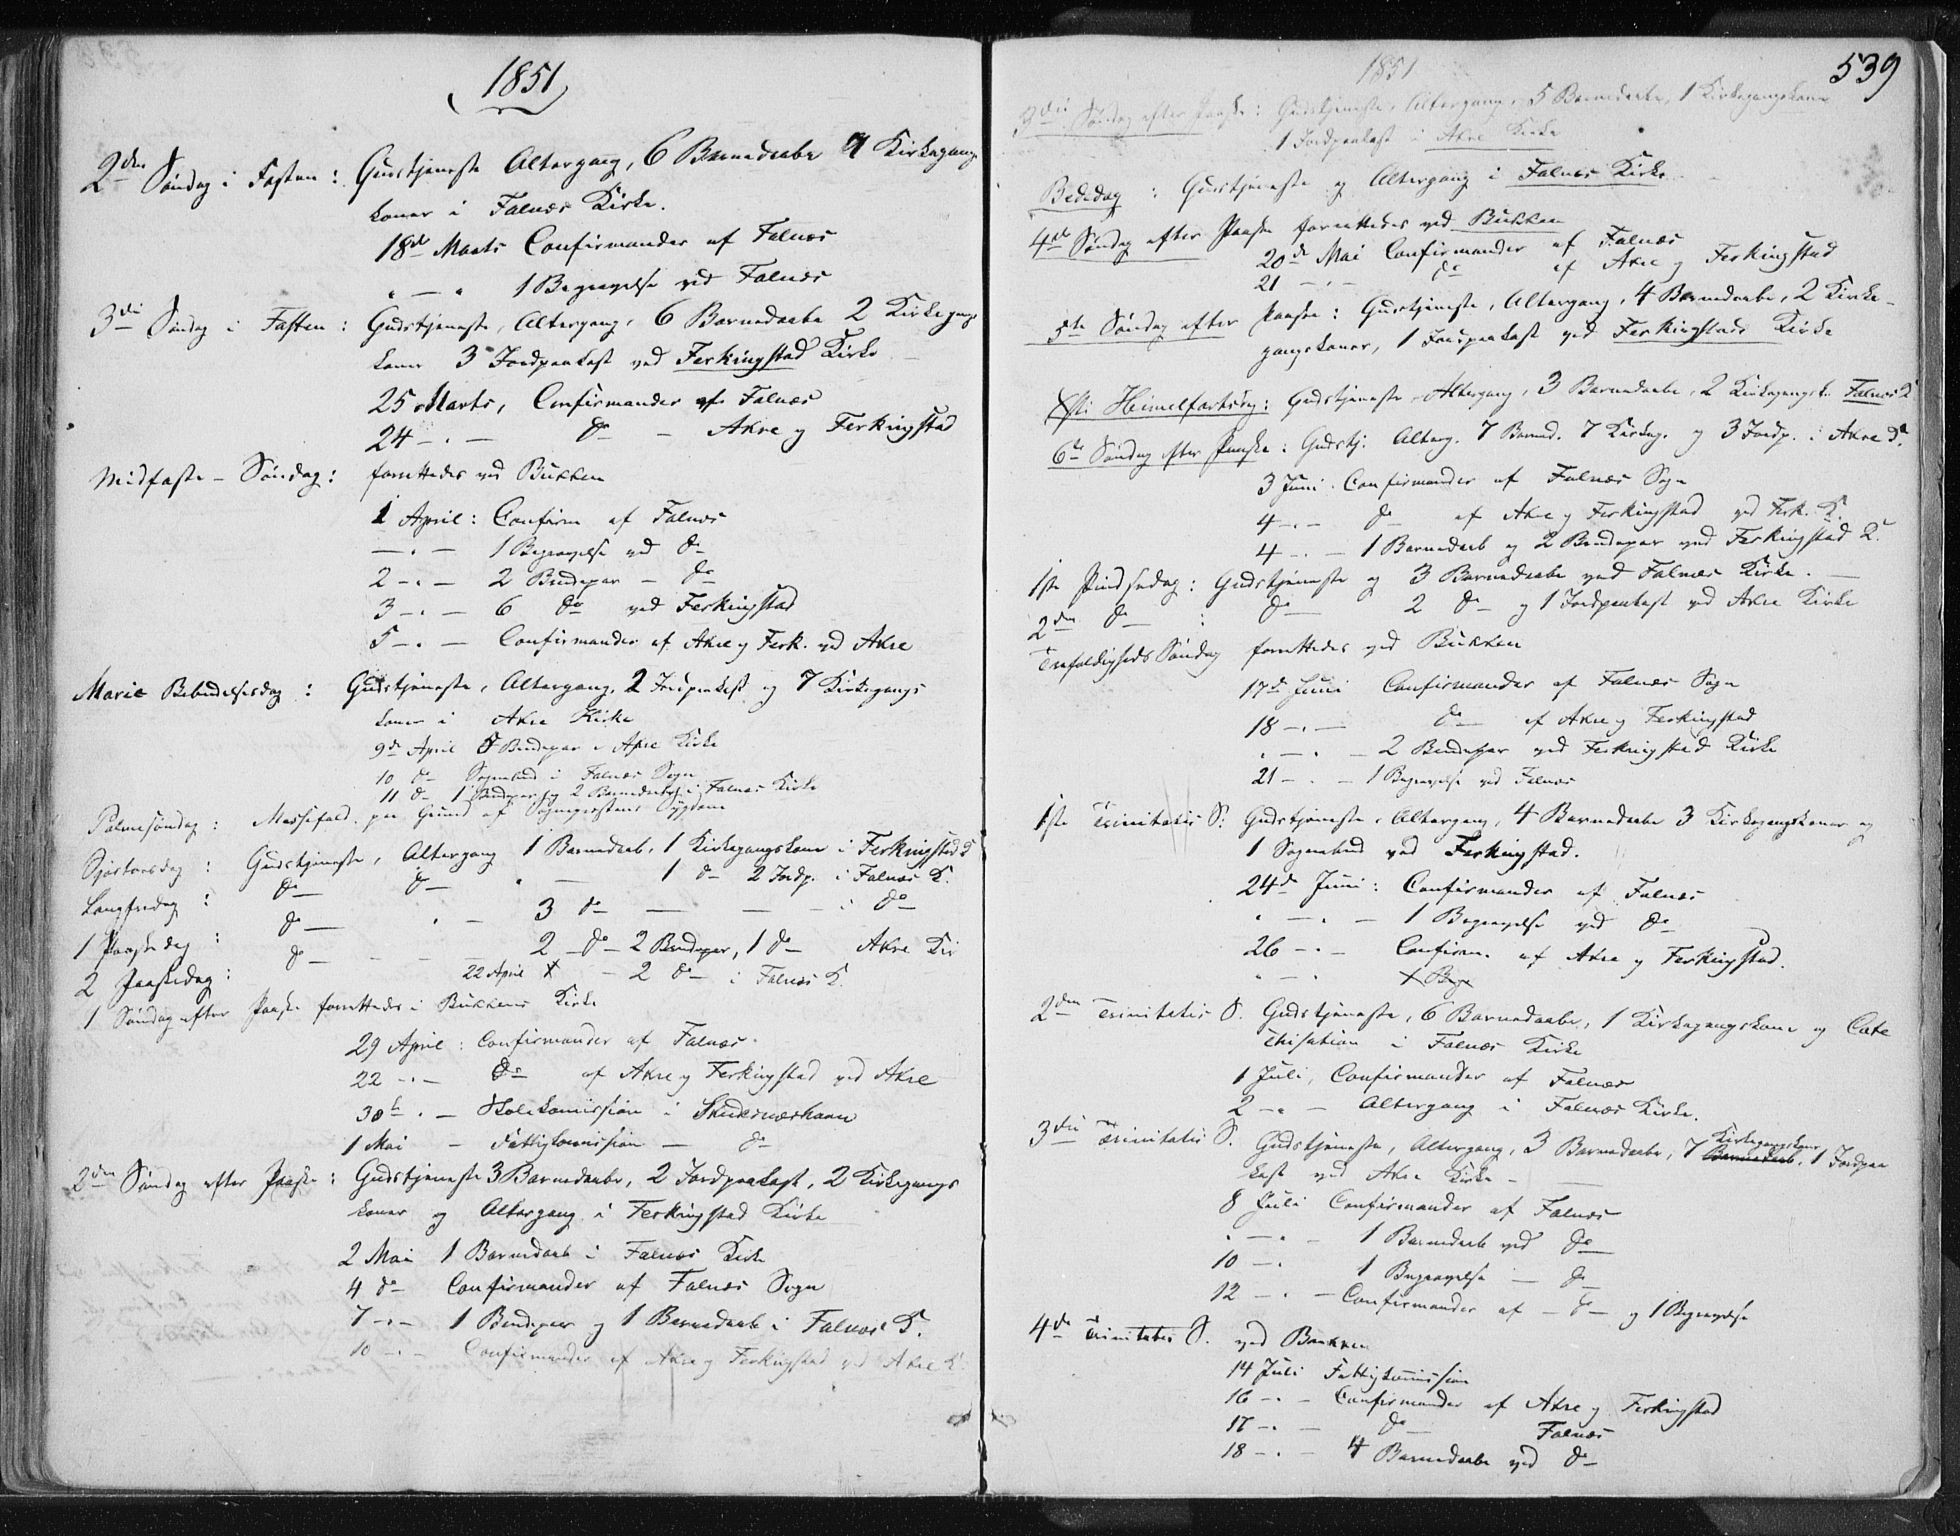 1851
2den Søndag i Fasten: Gudstjeneste Altergang, 6 Barnedaabe 9 Kirkegangs
koner i Falnæs Kirke.
18de Marts Confirmander af Falnæs
" — " 1 Begravelse ved Falnæs
3die Søndag i Fasten: Gudstjeneste, Altergang, 6 Barnedaabe 2 Kirkegangs
koner 3 Jordpaakast ved Ferkingstad Kirke
25 Marts, Confirmander af Falnæs
24 – " – do – Akre og Ferkingstad
Midfaste-Søndag: forrettedes ved Bukken
1 April: Confirm af Falnæs
— " — 1 Begravelse ved do
2 – " – 2 Brudepar – do
3 – " – 6 do ved Ferkingstad
5 – " – Confirmander af Akre og Ferk. ved Akre
Mariæ Bebudelsesdag: Gudstjeneste, Altergang, 2 Jordpaakast og 7 Kirkegangs
koner i Akre Kirke
9de April 8 Brudepar i Akre Kirke
10 do Sognebud i Falnæs Sogn
11 do 1 Brudepar og 2 Barnedaabe i Falnæs Kirke
Palmesøndag: Messefald paa Grund af Sognepræstens Sygdom
Skjærtorsdag: Gudstjeneste, Altergang 1 Barnedaab, 1 Kirkegangskone i Ferkingstad K
Langfredag: do do " — 1 do 2 Jordp. i Falnæs K.
1 Paaskedag: do " – 3 do — — i do
2 Paaskedag: do – – – 2 do 2 Brudepar, 1 do Akre Kir
22 April – 2 do i Falnæs K.
1 Søndag efter Paaske forrettedes i Bukkens Kirke
29 April: Confirmander af Falnæs.
22 – " – do af Akre og Ferkingstad ved Akre
30te " – Skolekomission i Skudesnæshavn
1 Mai – Fattigkomission — do
2den Søndag efter Paaske: Gudstjeneste 3 Barnedaabe, 2 Jordpaakast, 2 Kirkegangs
koner og Altergang i Ferkingstad Kirke
2 Mai 1 Barnedaab i Falnæs Kirke
4 do Confirmander af Falnæs Sogn
7 – " – 1 Brudepar og 1 Barnedaab i Falnæs K.
10 – " – Confirmander af Akre og Ferkingstad ved Akre K.
1851
539
3die Søndag efter Paaske: Gudstjeneste, Altergang, 5 Barnedaabe, 1 Kirkegangskone
1 Jordpaakast i Akre Kirke
Bededag: Gudstjeneste og Altergang i Falnæs Kirke
4de Søndag efter Paaske forrettedes ved Bukken
20de Mai Confirmander af Falnæs
21 – " – do af Akre og Ferkingstad
5te Søndag efter Paaske: Gudstjeneste, Altergang, 4 Barnedaabe, 2 Kirke-
gangskoner, 1 Jordpaakast ved Ferkingstads Kirke
Xsti Himmelfartsdag: Gudstjeneste, Altergang, 3 Barnedaabe, 2 Kirkegangsk. Falnæs K
6te Søndag efter Paaske: Gudstj. Alterg. 7 Barned. 7 Kirkeg. og 3 Jordp. i Akre K.
3 Juni. Confirmander af Falnæs Sogn
4 – " – do af Akre og Ferkingstad ved Ferk. K.
4 – " – 1 Barnedaab og 2 Brudepar ved Ferkingstad K.
1ste Pindsedag: Gudstjeneste og 3 Barnedaabe ved Falnæs Kirke.
2den do : do 2 do og 1 Jordpaakast ved Akre Kirke
Trefoldigheds Søndag forrettedes ved Bukken
17de Juni Confirmander af Falnæs Sogn
18 – " – do af Akre og Ferkingstad
" – " – 2 Brudepar ved Ferkingstad Kirke
21 – " – 1 Begravelse ved Falnæs
1ste Trinitatis S. Gudstjeneste, Altergang, 4 Barnedaabe 3 Kirkegangskoner og
1 Sognebud ved Ferkingstad.
24de Juni: Confirmander af Falnæs
" – " – 1 Begravelse ved do
26 – " – Confirm. af Akre og Ferkingstad.
" – " X Begr
2den Trinitatis S. Gudstjeneste, 6 Barnedaabe, 1 Kirkegangskone og Cate
chisation i Falnæs Kirke
1 Juli, Confirmander af Falnæs
2 – " – Altergang i Falnæs Kirke.
3die Trinitatis S. Gudstjeneste, Altergang, 3 Barnedaabe, 7 Kirkegangskoner Barnedaab, 1 Jordpaa
kast ved Akre Kirke –
8 Juli Confirmander af Falnæs
" – " – 1 Barnedaab ved do
10 – " 1 Begravelse – do
12 – " – Confirmander af – do – og 1 Begravelse
4de Trinitatis S. ved Bukken
14 Juli Fattigkomission
16 – " – Confirmander af Akre og Ferkingstad
17 – " – do Falnæs
18 – " – 4 Barnedaabe ved do